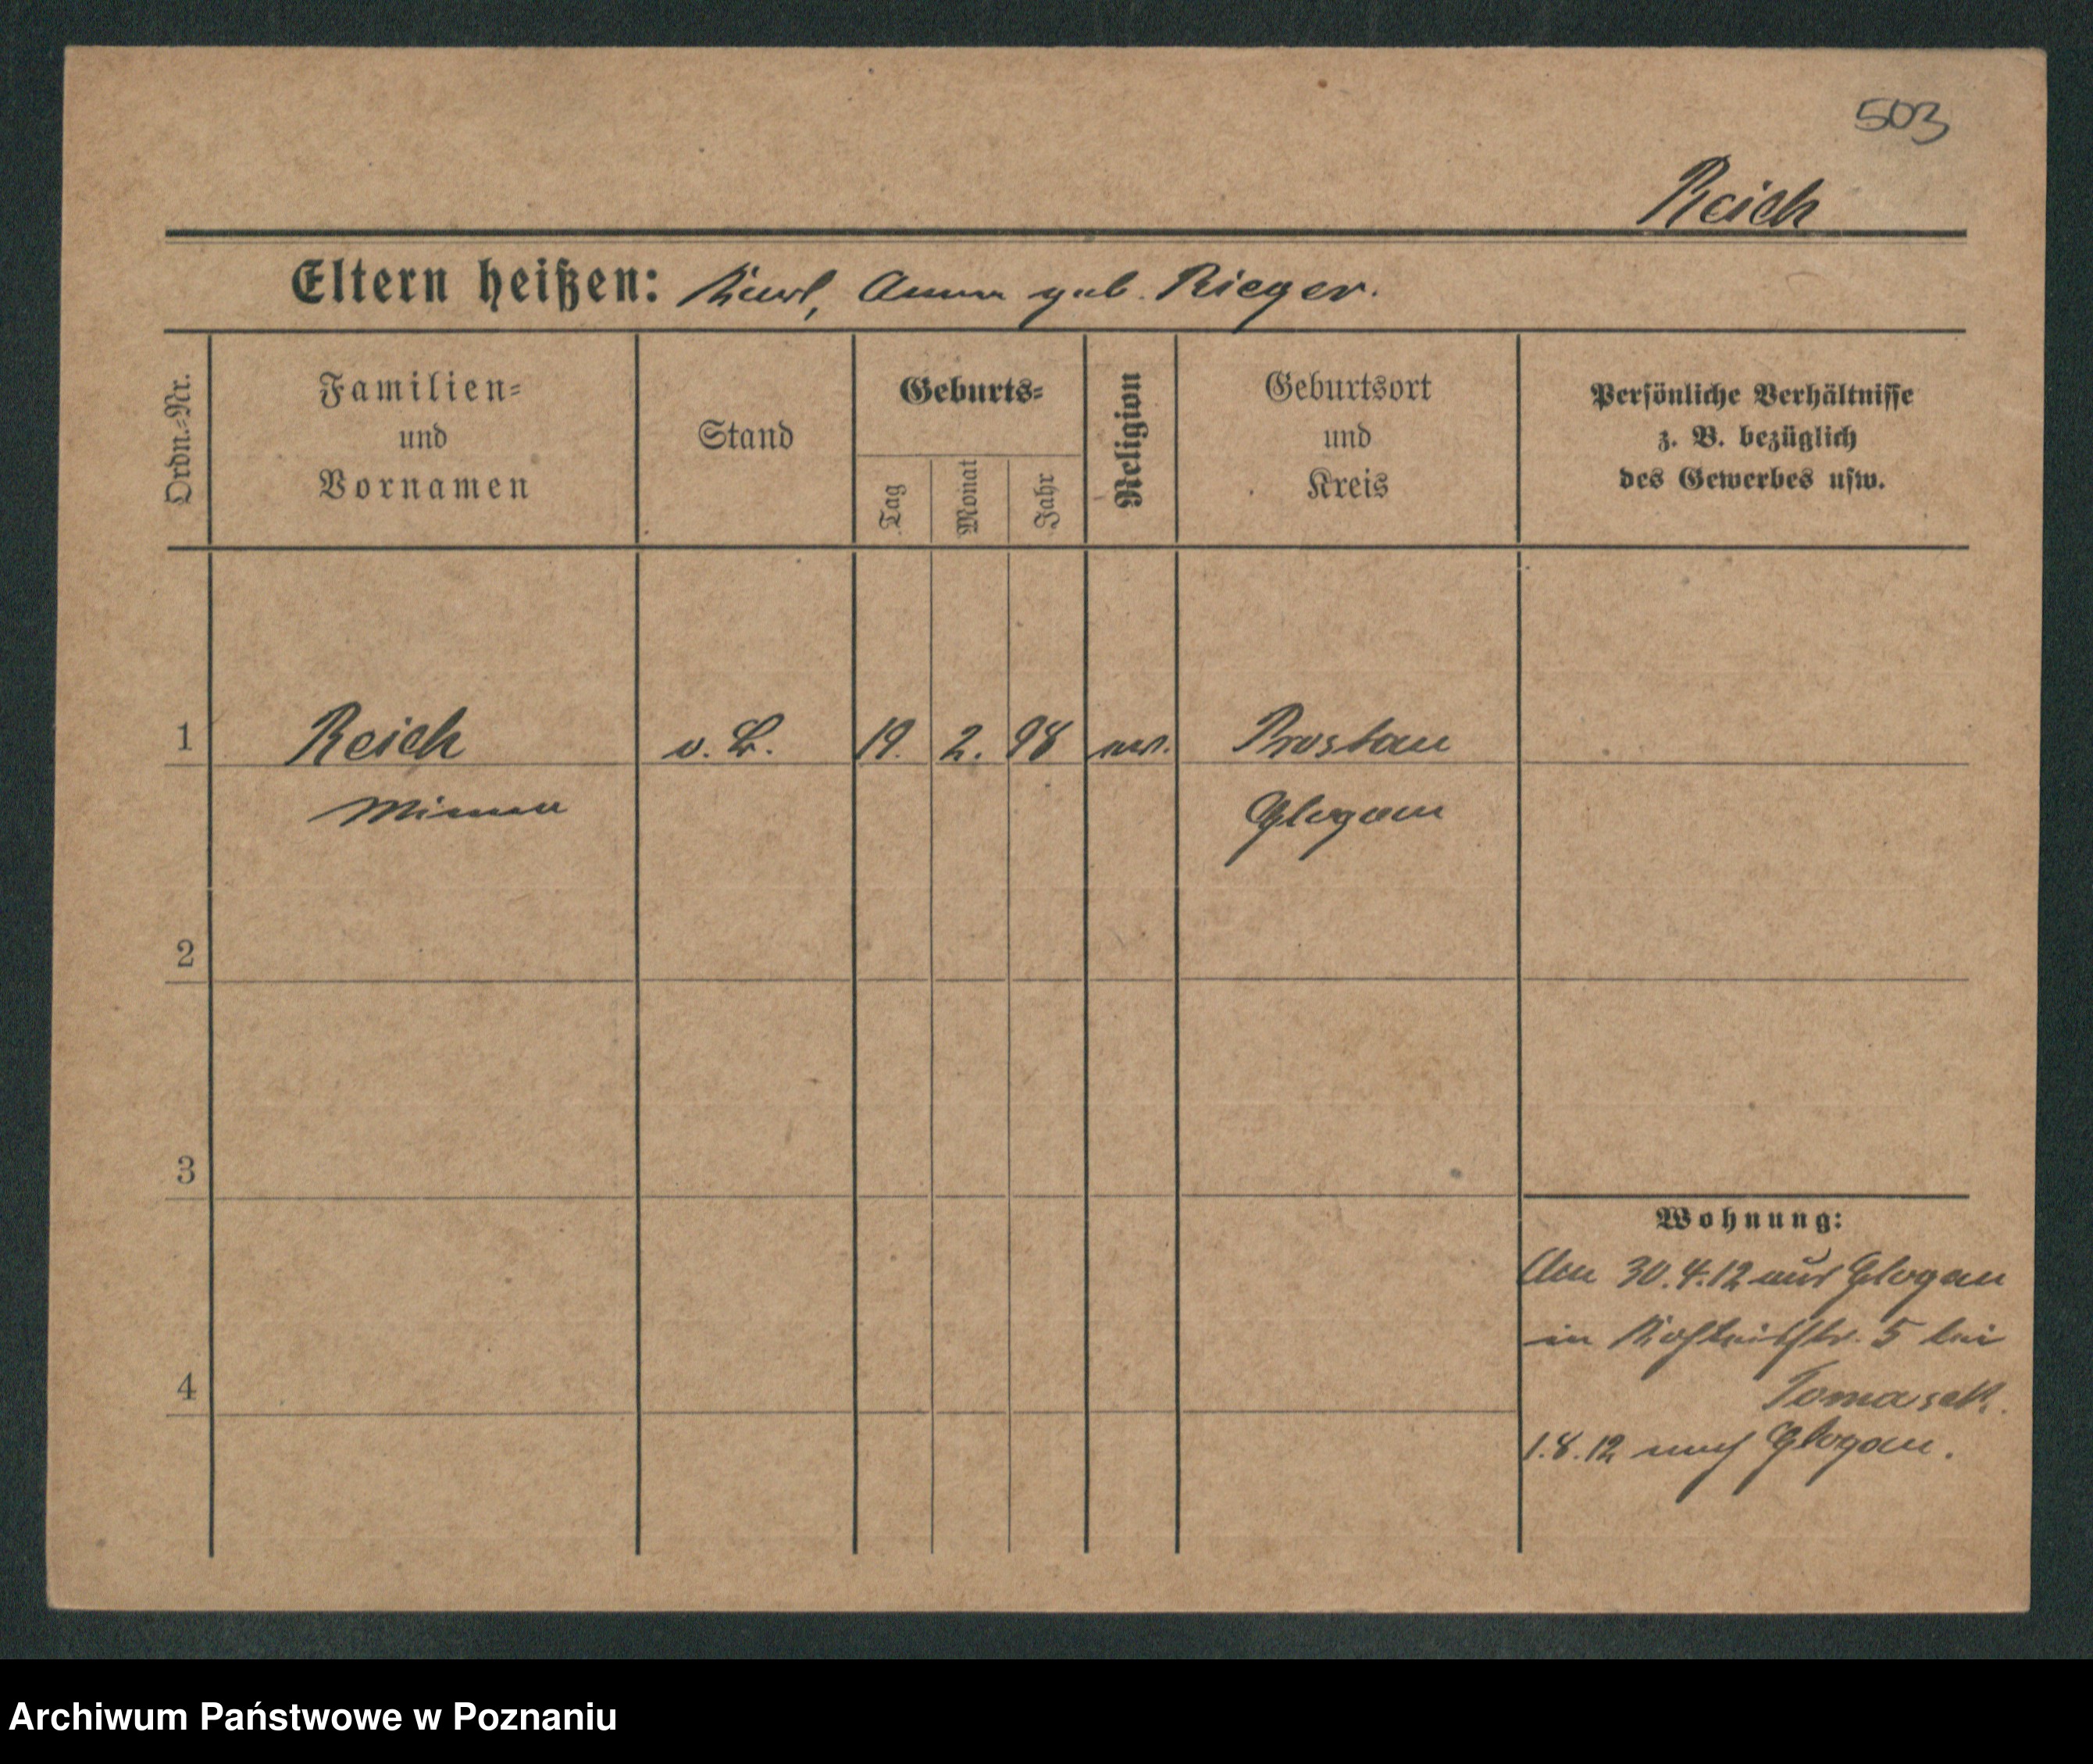 503
Reich
Eltern heißen: Karl, Anna geb. Rieger.
Ordn.=Nr.
Familien=
und
Vornamen
Stand
Geburts=
Tag
Monat
Jahr
Religion
Geburtsort
und
Kreis
Persönliche Verhältnisse
z. B. bezüglich
des Gewerbes usw.
1 Reich 19. 2. 98 Prostau
Minna Glogau
2
3
4
Wohnung:
Am 30.4.12 aus Glogau
in 5 bei
Tomasek.
1.8.12 nach Glogau.
Archiwum Państwowe w Poznaniu